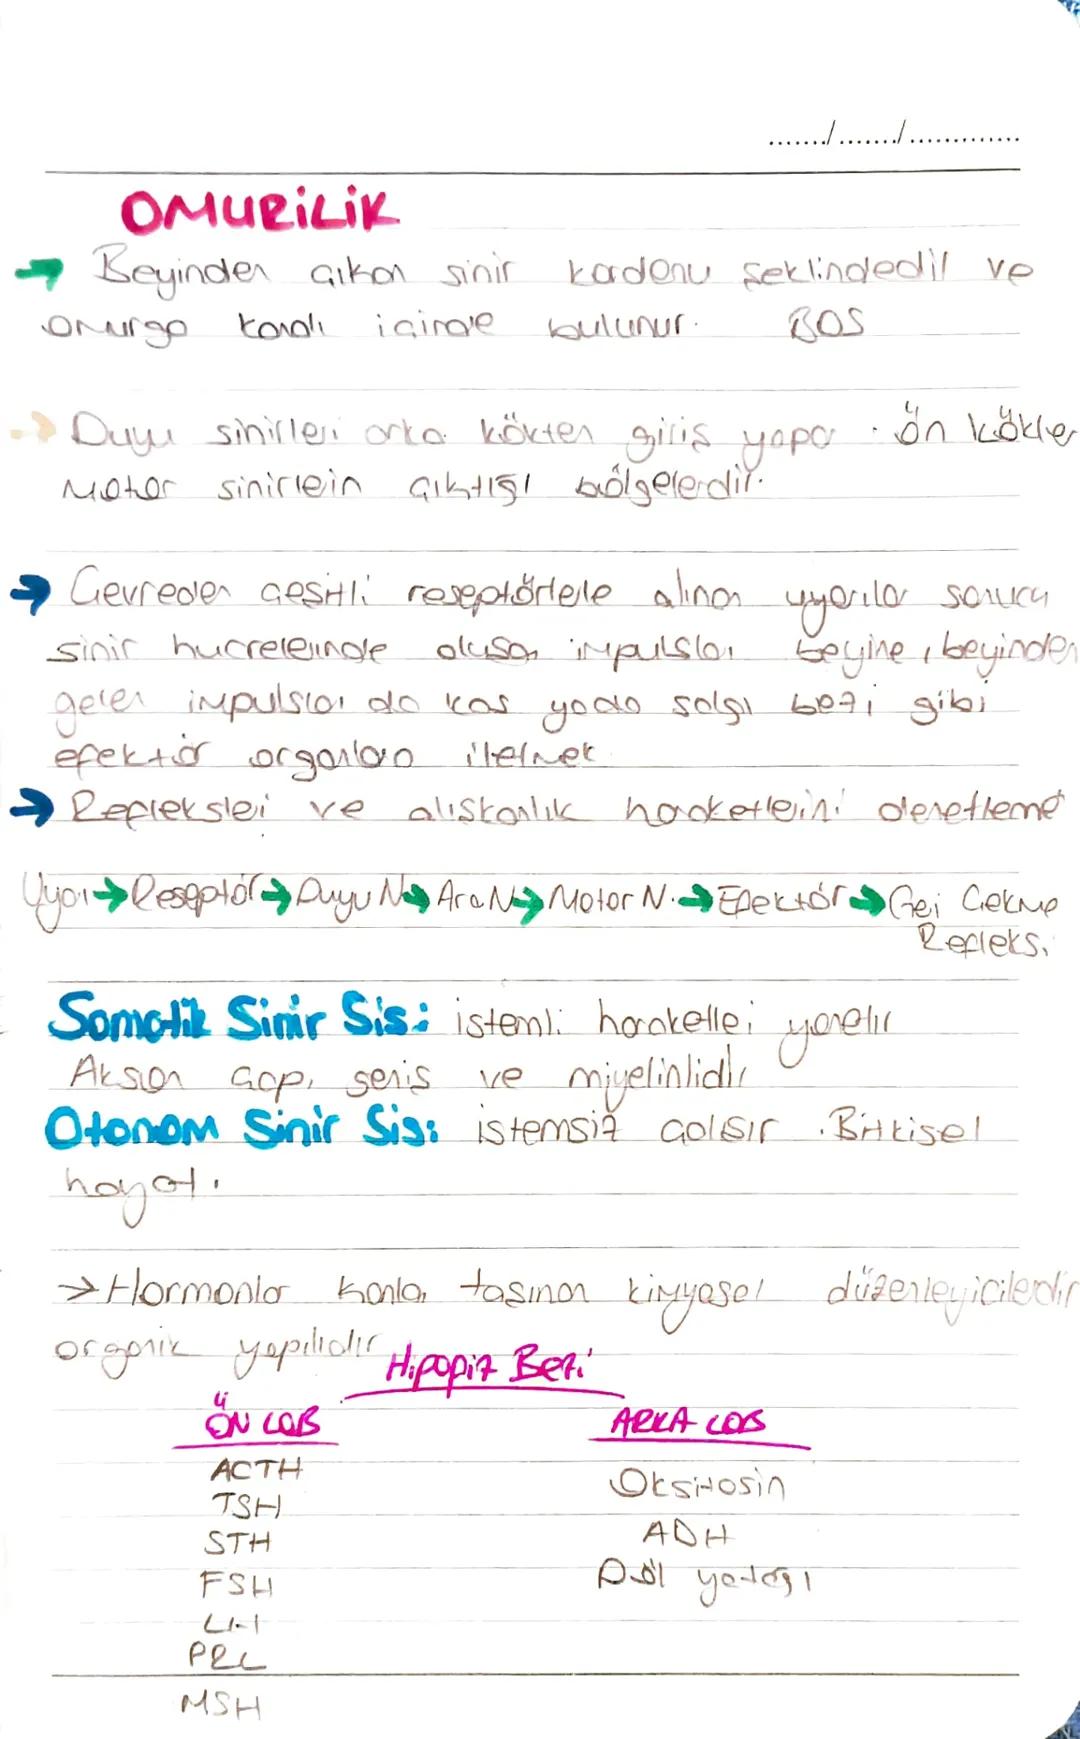 ....../......./.............
OMURİLİK
→ Beyinden çıkan sinir kordonu şeklindedir ve
omurga kanalı içinde bulunur. BOS
→ Duyu sinirleri arka kökten giriş yapar. Ön kökler
Motor sinirlerin çıktığı bölgelerdir.
→ Çevreden çeşitli reseptörlerle alınan uyarılar sonucu
sinir hücrelerinde oluşan impulsları beyine, beyinden
gelen impulsları da kas yada salgı bezi gibi
efektör organlara iletmek
→ Refleksleri ve alışkanlık hareketlerini denetleme
Uyarı → Reseptör → Duyu N → Ara N → Motor N. → Efektör → Geri Çekme
Refleksi
Somatik Sinir Sis: istemli hareketleri yönetir
Akson çapı geniş ve miyelinlidir
Otonom Sinir Sis: istemsiz çalışır. Bitkisel
hayat.
→ Hormonlar kanla taşınan kimyasal düzenleyicilerdir
organik yapılıdır
Hipofiz Bezi
ÖN LOB ARKA LOB
ACTH
Oksitosin
TSH
STH ADH
FSH Döl yatağı
LH
PRL
MSH